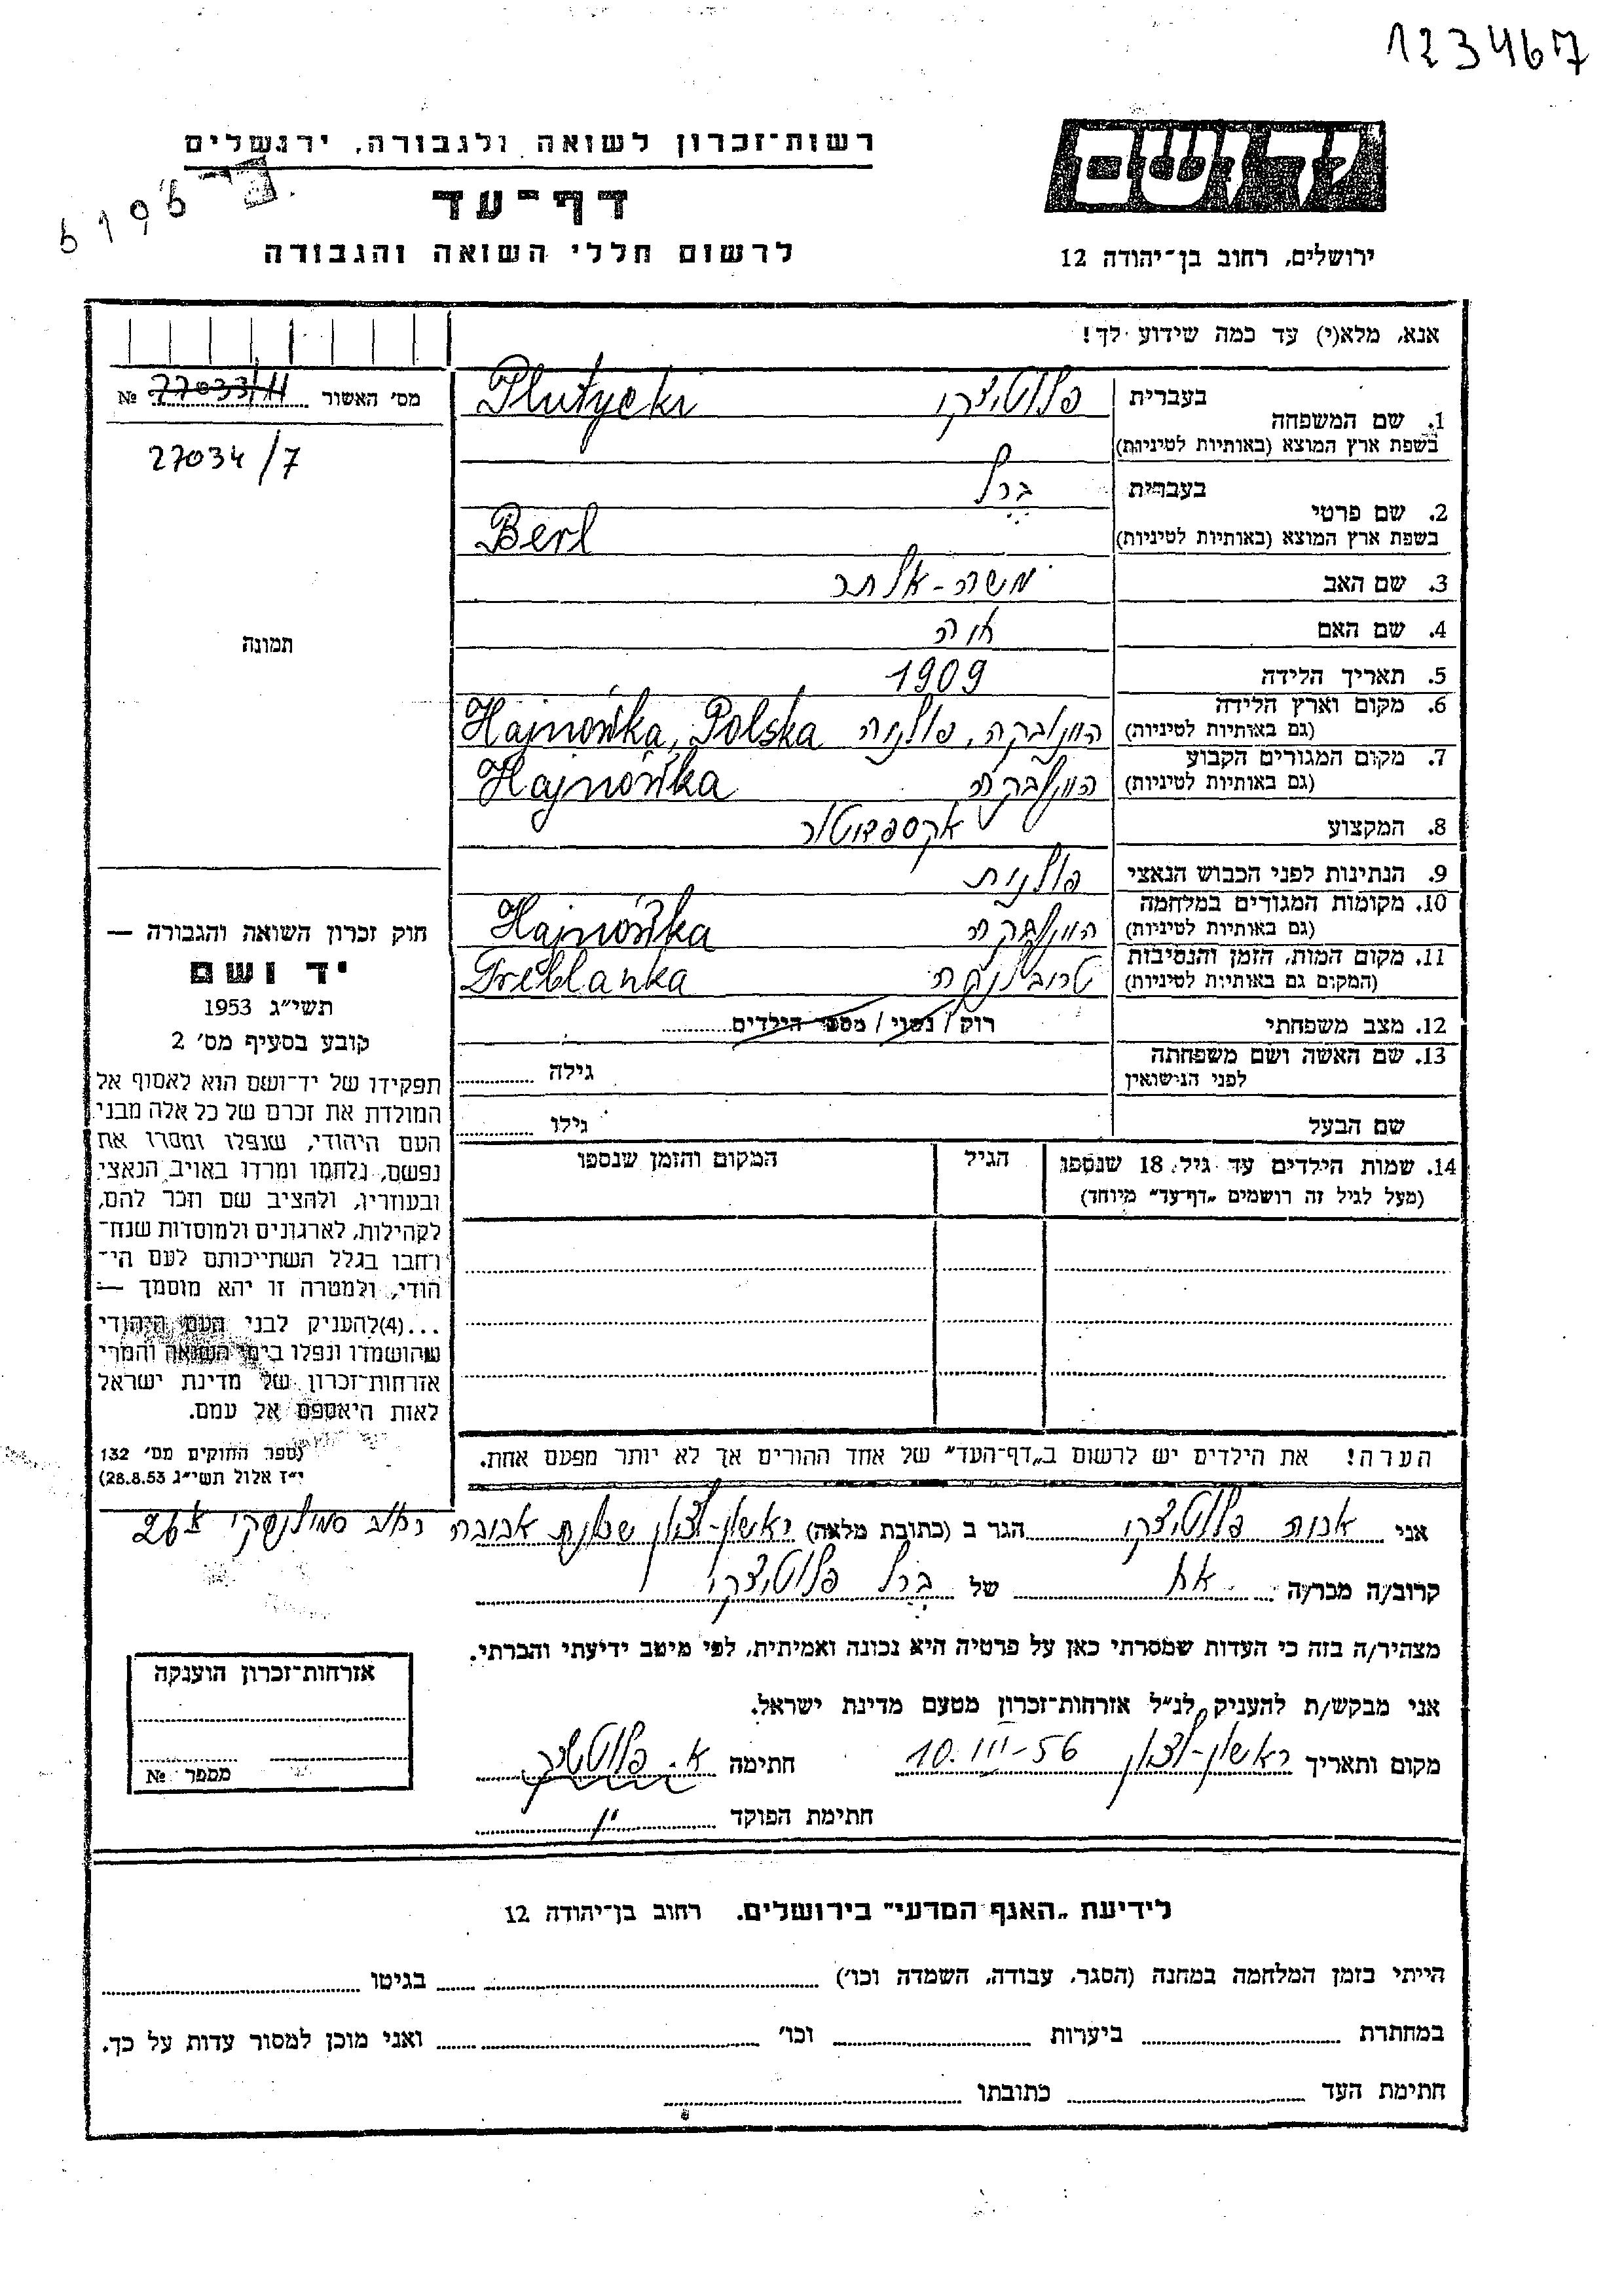 123467
רשות־זכרון לשואה ולגבורה, ירושלים
דף־עד
לרשום חללי השואה והגבורה
6196
ידושם
ירושלים, רחוב בן־יהודה 12
אנא, מלא(י) עד כמה שידוע לך!
מס׳ האשור 77033/11 №
27034/7
תמונה
1. שם המשפחה בעברית פלוטיצקי Plutycki
בשפת ארץ המוצא (באותיות לטיניות)
2. שם פרטי בעברית ברל
בשפת ארץ המוצא (באותיות לטיניות) Berl
3. שם האב משה-אלתר
4. שם האם
5. תאריך הלידה 1909
6. מקום וארץ הלידה
(גם באותיות לטיניות) היינובקה, פולניה Hajnówka, Polska
7. מקום המגורים הקבוע
(גם באותיות לטיניות) היינובקה Hajnówka
8. המקצוע אקספדיטור
9. הנתינות לפני הכבוש הנאצי פולנית
10. מקומות המגורים במלחמה
(גם באותיות לטיניות) היינובקה Hajnówka
11. מקום המות, הזמן והנסיבות
(המקום גם באותיות לטיניות) טרבלנקה Treblanka
12. מצב משפחתי רוק / נשוי / מספר הילדים
13. שם האשה ושם משפחתה
לפני הנישואין גילה
שם הבעל גילו
14. שמות הילדים עד גיל 18 שנספו הגיל המקום והזמן שנספו
(מעל לגיל זה רושמים „דף־עד” מיוחד)
הערה! את הילדים יש לרשום ב„דף־העד” של אחד ההורים אך לא יותר מפעם אחת.
חוק זכרון השואה והגבורה —
יד ושם
תשי״ג 1953
קובע בסעיף מס׳ 2
תפקידו של יד־ושם הוא לאסוף אל
המולדת את זכרם של כל אלה מבני
העם היהודי, שנפלו ומסרו את
נפשם, נלחמו ומרדו באויב הנאצי
ובעוזריו, ולהציב שם וזכר להם,
לקהילות, לארגונים ולמוסדות שנח־
רחבו בגלל השתייכותם לעם הי־
הודי, ולמטרה זו יהא מוסמך —
...(4)להעניק לבני העם היהודי
שהושמדו ונפלו בימי השואה והמרי
אזרחות־זכרון של מדינת ישראל
לאות היאספם אל עמם.
(ספר החוקים מס׳ 132
י״ז אלול תשי״ג 28.8.53)
אני אנוה פלוטיצקי הגר ב (כתובת מלאה) ראשון-לציון שכונת אביבה רחוב סמולנסקי 26
קרוב/ה מכר/ה אח של ברל פלוטיצקי
מצהיר/ה בזה כי העדות שמסרתי כאן על פרטיה היא נכונה ואמיתית, לפי מיטב ידיעתי והכרתי.
אני מבקש/ת להעניק לנ״ל אזרחות־זכרון מטעם מדינת ישראל.
מקום ותאריך ראשון-לציון 10.III-56 חתימה א. פלוטיצקי
חתימת הפוקד
אזרחות־זכרון הוענקה
מספר №
לידיעת „האגף המדעי” בירושלים. רחוב בן־יהודה 12
הייתי בזמן המלחמה במחנה (הסגר, עבודה, השמדה וכו׳) בגיטו
במחתרת ביערות וכו׳ ואני מוכן למסור עדות על כך.
חתימת העד כתובתו